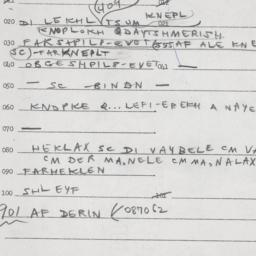 409
KNEPL
020 DI LEKHL TSUM 021
KNOPLOKH QDAYTSHMERISH
030 FARSHPILP-EVET (555AF ALE KNE
SC)-FARKNEPLT
040 OBGESHPILP-EVET 041
050 — SC -BINDN —
060 KNOPKE Q...LEFI-EPEKH A NAYE
070
080 HEKLAX SC DI VAYBELE CM VA
CM DER MA,NELE CM MA,NALAX
090 FARHEKLEN
100 SHLEYF
901 AF DERIN 087062